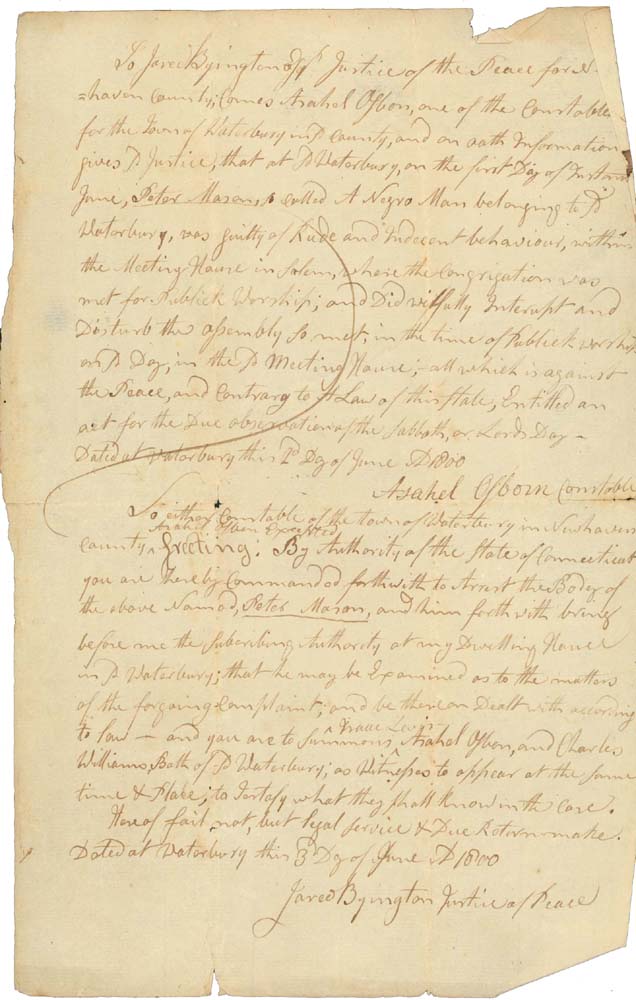 To Jared Byington Esqr Justice of the Peace for N
=haven County; Comes Asahel Osbon, one of the Constables
for the Town of Waterbury in sd County, and on oath Information
gives sd Justice, that at sd Waterbury, on the first Day of Instant
June, Peter Mason, so called A Negro Man belonging to sd
Waterbury, was guilty of Rude and Indecent behaviour, within
the Meeting House in Salem, where the Congrigation was
met for Publick Worship; and Did wilfully Interupt and
Disturb the assembly so met, in the time of Publick worship
on sd Day, in the sd Meeting House; – all which is against
the Peace, and Contrary to A Law of this State, Entitled an
act for the Due observation of the Sabbath, or Lords Day –
Dated at Waterbury this 2d Day of June AD 1800
Asahel Osborn Constable
To either Constable of the town of Waterbury in Newhaven
Asahel Osbon Excepted
County ^ Greeting. By Authority of the State of Connecticut
you are hereby Commanded forthwith to Arrest the Body of
the above Named, Peter Mason, and him forthwith bring
before me the Subscribing Authority at my Dwelling House
in sd Waterbury; that he may be Examined as to the matters
of the forgoing Complaint; and be thereon Dealt with according
^ Isaac Lewis
to law – and you are to Summons, Asahel Osbon, and Charles
Williams, Both of sd Waterbury; as Witneses to appear at the same
time & Place; to Testafy what they shall know in the case.
Hereof fail not, but legal service & Due Return make.
Dated at Waterbury this 3d Day of June AD 1800
Jared Byington Justice of Peace